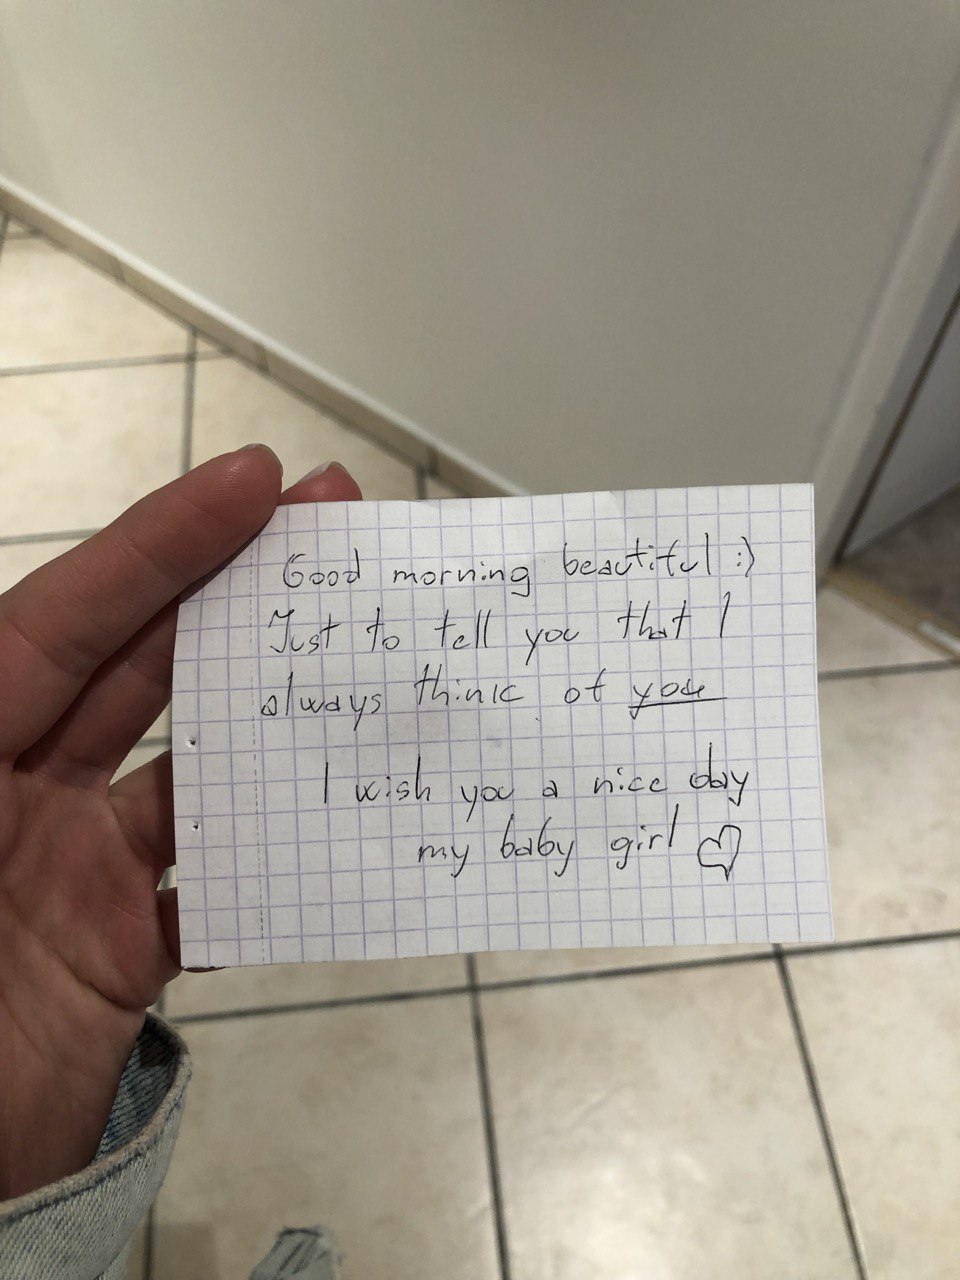 Good morning beautiful :)
Just to tell you that I
always think of you
I wish you a nice day
my baby girl ♡